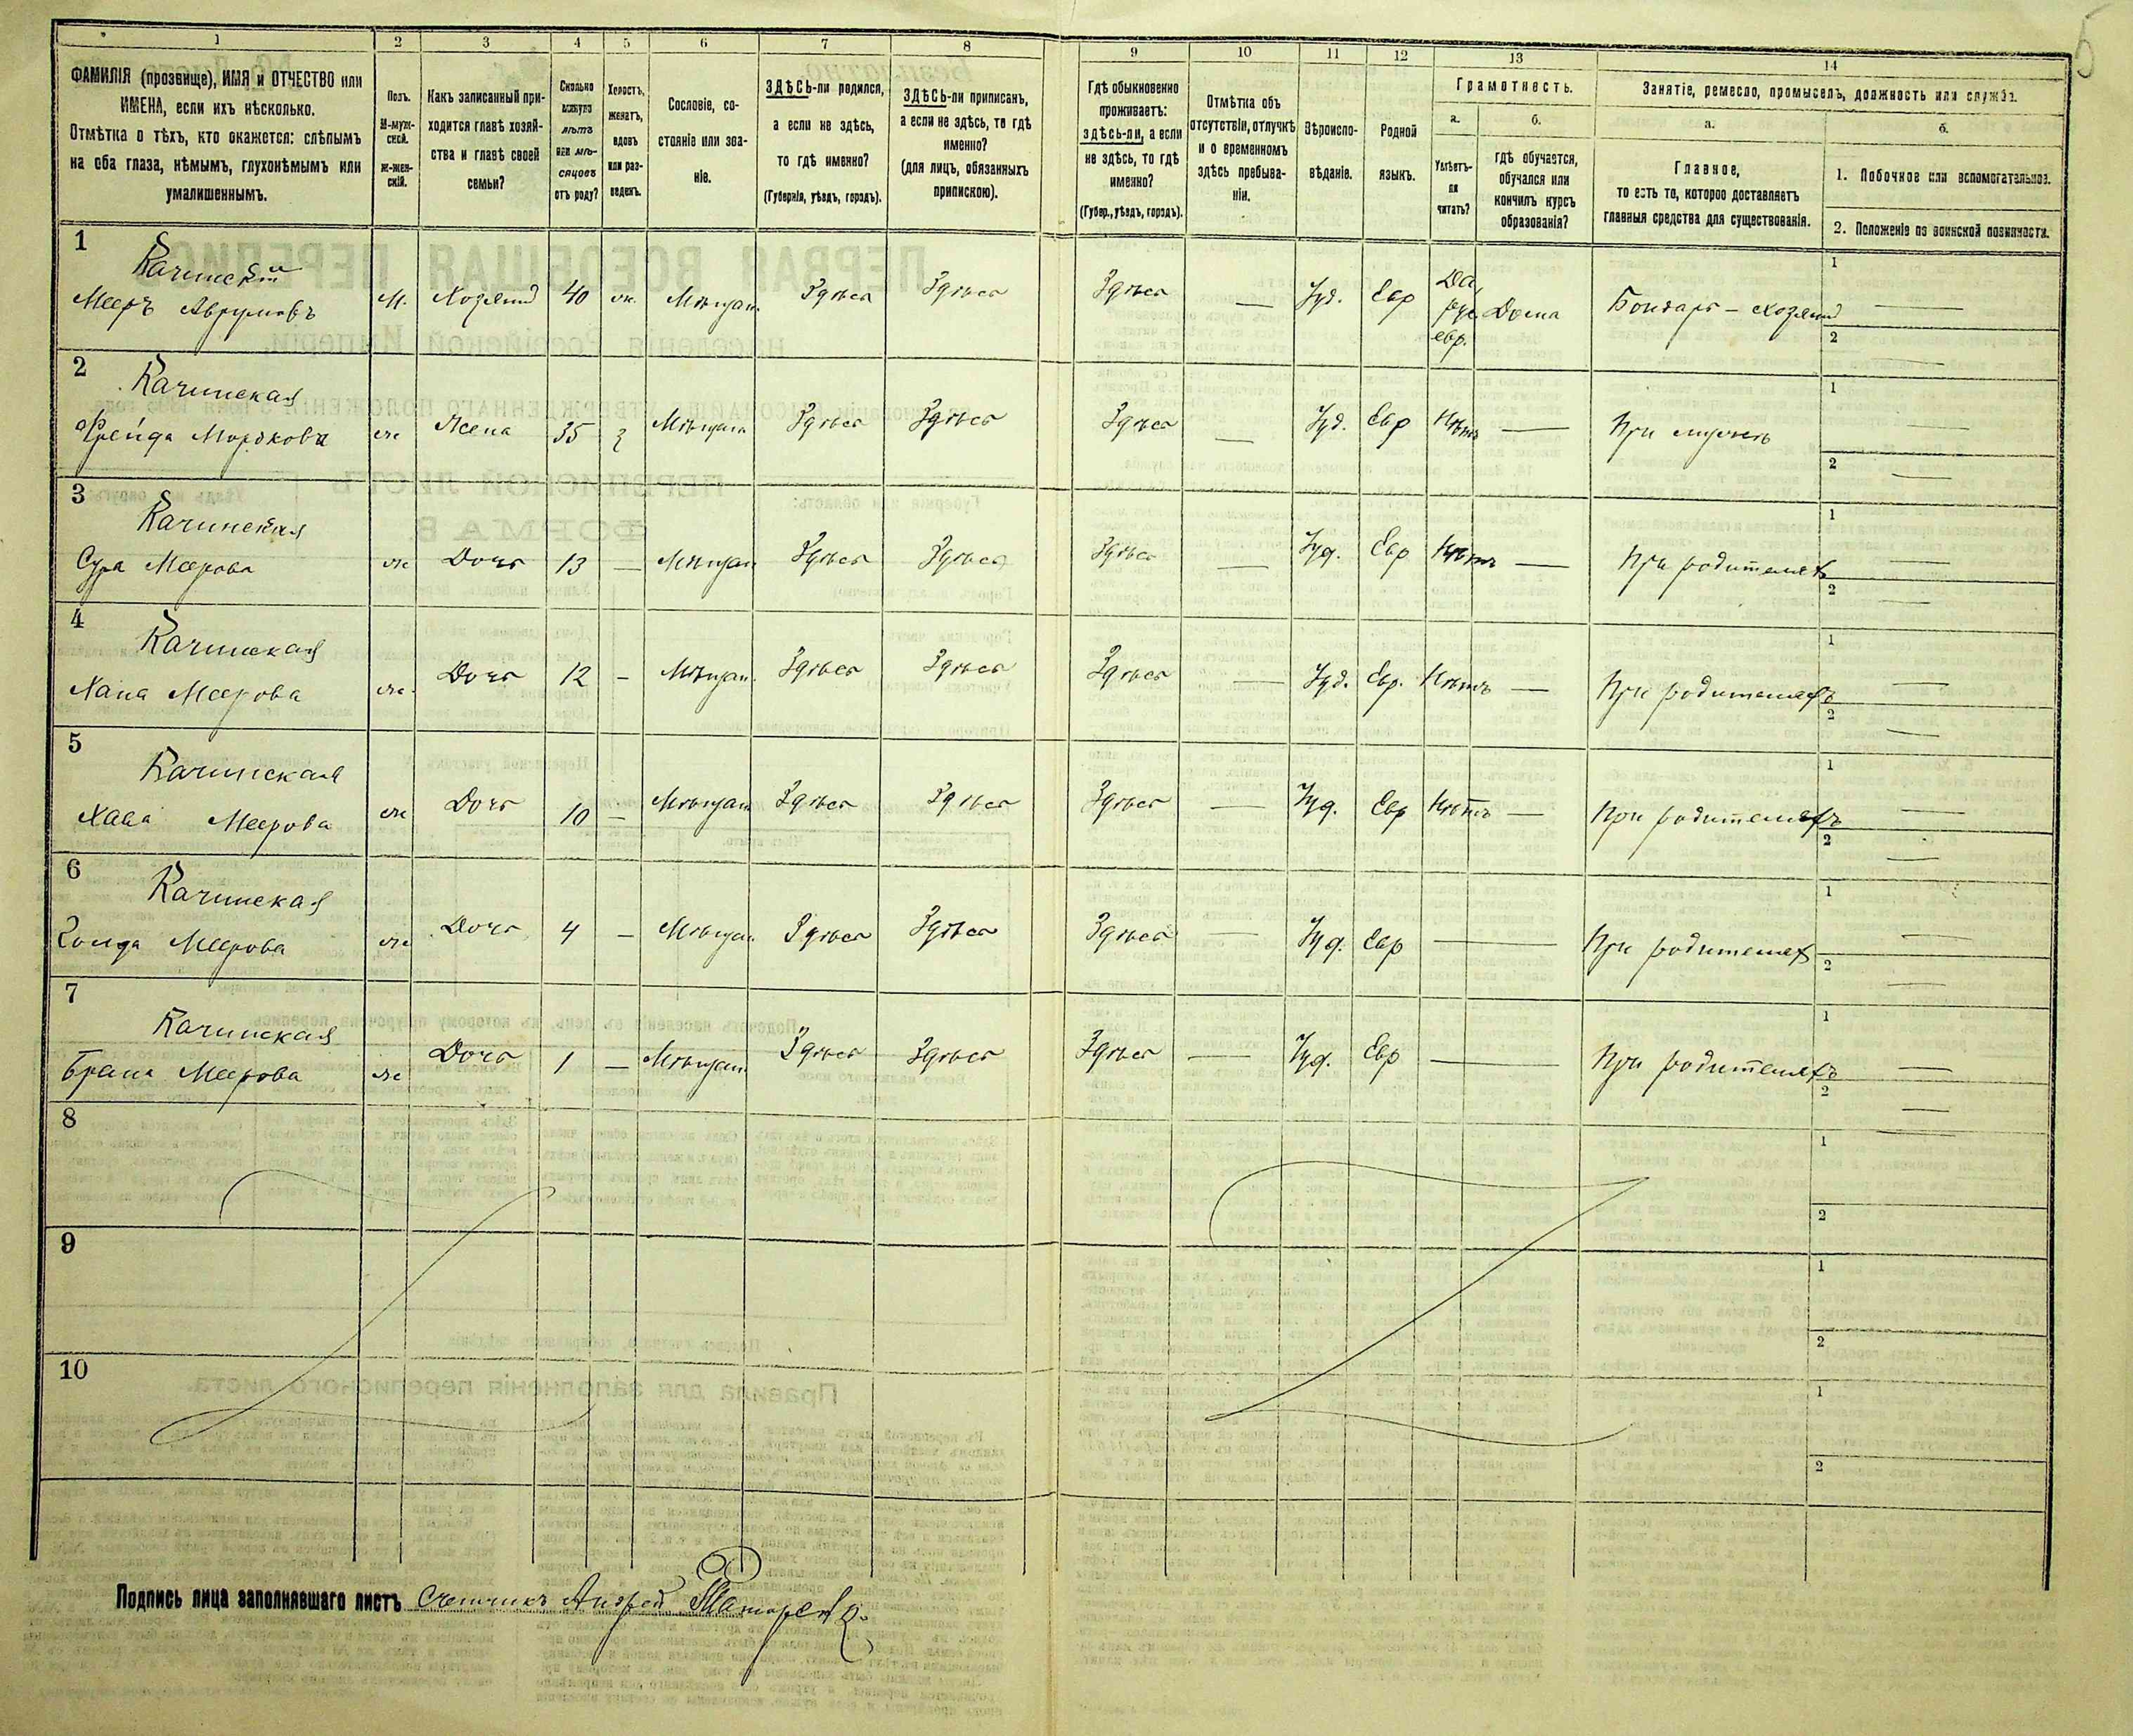 5
1 2 3 4 5 6 7 8 9 10 11 12 13 14
ФАМИЛІЯ (прозвище), ИМЯ и ОТЧЕСТВО или
ИМЕНА, если ихъ нѣсколько.
Отмѣтка о тѣхъ, кто окажется: слѣпымъ
на оба глаза, нѣмымъ, глухонѣмымъ или
умалишеннымъ.
Полъ.
М-муж-
ской.
ж-жен-
скій.
Какъ записанный при-
ходится главѣ хозяй-
ства и главѣ своей
семьи?
Сколько
минуло
лѣтъ
или мѣ-
сяцовъ
отъ роду?
Холостъ,
женатъ,
вдовъ
или раз-
веденъ.
Сословіе, со-
стояніе или зва-
ніе.
ЗДѢСЬ-ли родился,
а если не здѣсь,
то гдѣ именно?
(Губернія, уѣздъ, городъ).
ЗДѢСЬ-ли приписанъ,
а если не здѣсь, то гдѣ
именно?
(для лицъ, обязанныхъ
припискою).
Гдѣ обыкновенно
проживаетъ:
здѣсь-ли, а если
не здѣсь, то гдѣ
именно?
(Губер., уѣздъ, городъ).
Отмѣтка объ
отсутствіи, отлучкѣ
и о временномъ
здѣсь пребыва-
ніи.
Вѣроиспо-
вѣданіе.
Родной
языкъ.
Грамотность.
а.
Умѣетъ-
ли
читать?
б.
гдѣ обучается,
обучался или
кончилъ курсъ
образованія?
Занятіе, ремесло, промыселъ, должность или служба.
а.
Главное,
то есть то, которое доставляетъ
главныя средства для существованія.
б.
1. Побочное или вспомогательное.
2. Положеніе по воинской повинности.
1
Качинскій
Мееръ Аврумовъ М. Хозяинъ 40 ж. Мѣщан. Здѣсь Здѣсь Здѣсь — Іуд. Евр Да, рус. евр. Дома Бондарь – хозяинъ 1 — 2 —
2
Качинская
Фрейда Мордкова ж Жена 35 з Мѣщан Здѣсь Здѣсь Здѣсь — Іуд. Евр Нѣтъ — При мужѣ 1 — 2 —
3
Качинская
Сура Меерова ж Дочь 13 — Мѣщан Здѣсь Здѣсь Здѣсь — Іуд. Евр Нѣтъ — При родителяхъ 1 — 2 —
4
Качинская
Хана Меерова ж. Дочь 12 – Мѣщан. Здѣсь Здѣсь Здѣсь — Іуд. Евр. Нѣтъ — При родителяхъ 1 — 2 —
5
Качинская
Хава Меерова ж Дочь 10 – Мѣщан Здѣсь Здѣсь Здѣсь — Іуд. Евр Нѣтъ — При родителяхъ 1 — 2 —
6
Качинская
Меерова ж Дочь 4 – Мѣщан. Здѣсь Здѣсь Здѣсь — Іуд. Евр — При родителях 1 — 2 —
7
Качинская
Меерова ж Дочь 1 — Мѣщан Здѣсь Здѣсь Здѣсь — Іуд. Евр — При родителяхъ 1 — 2 —
8 1 2
9 1 2
10 1 2
Подпись лица заполнявшаго листъ Счетчикъ Андрей